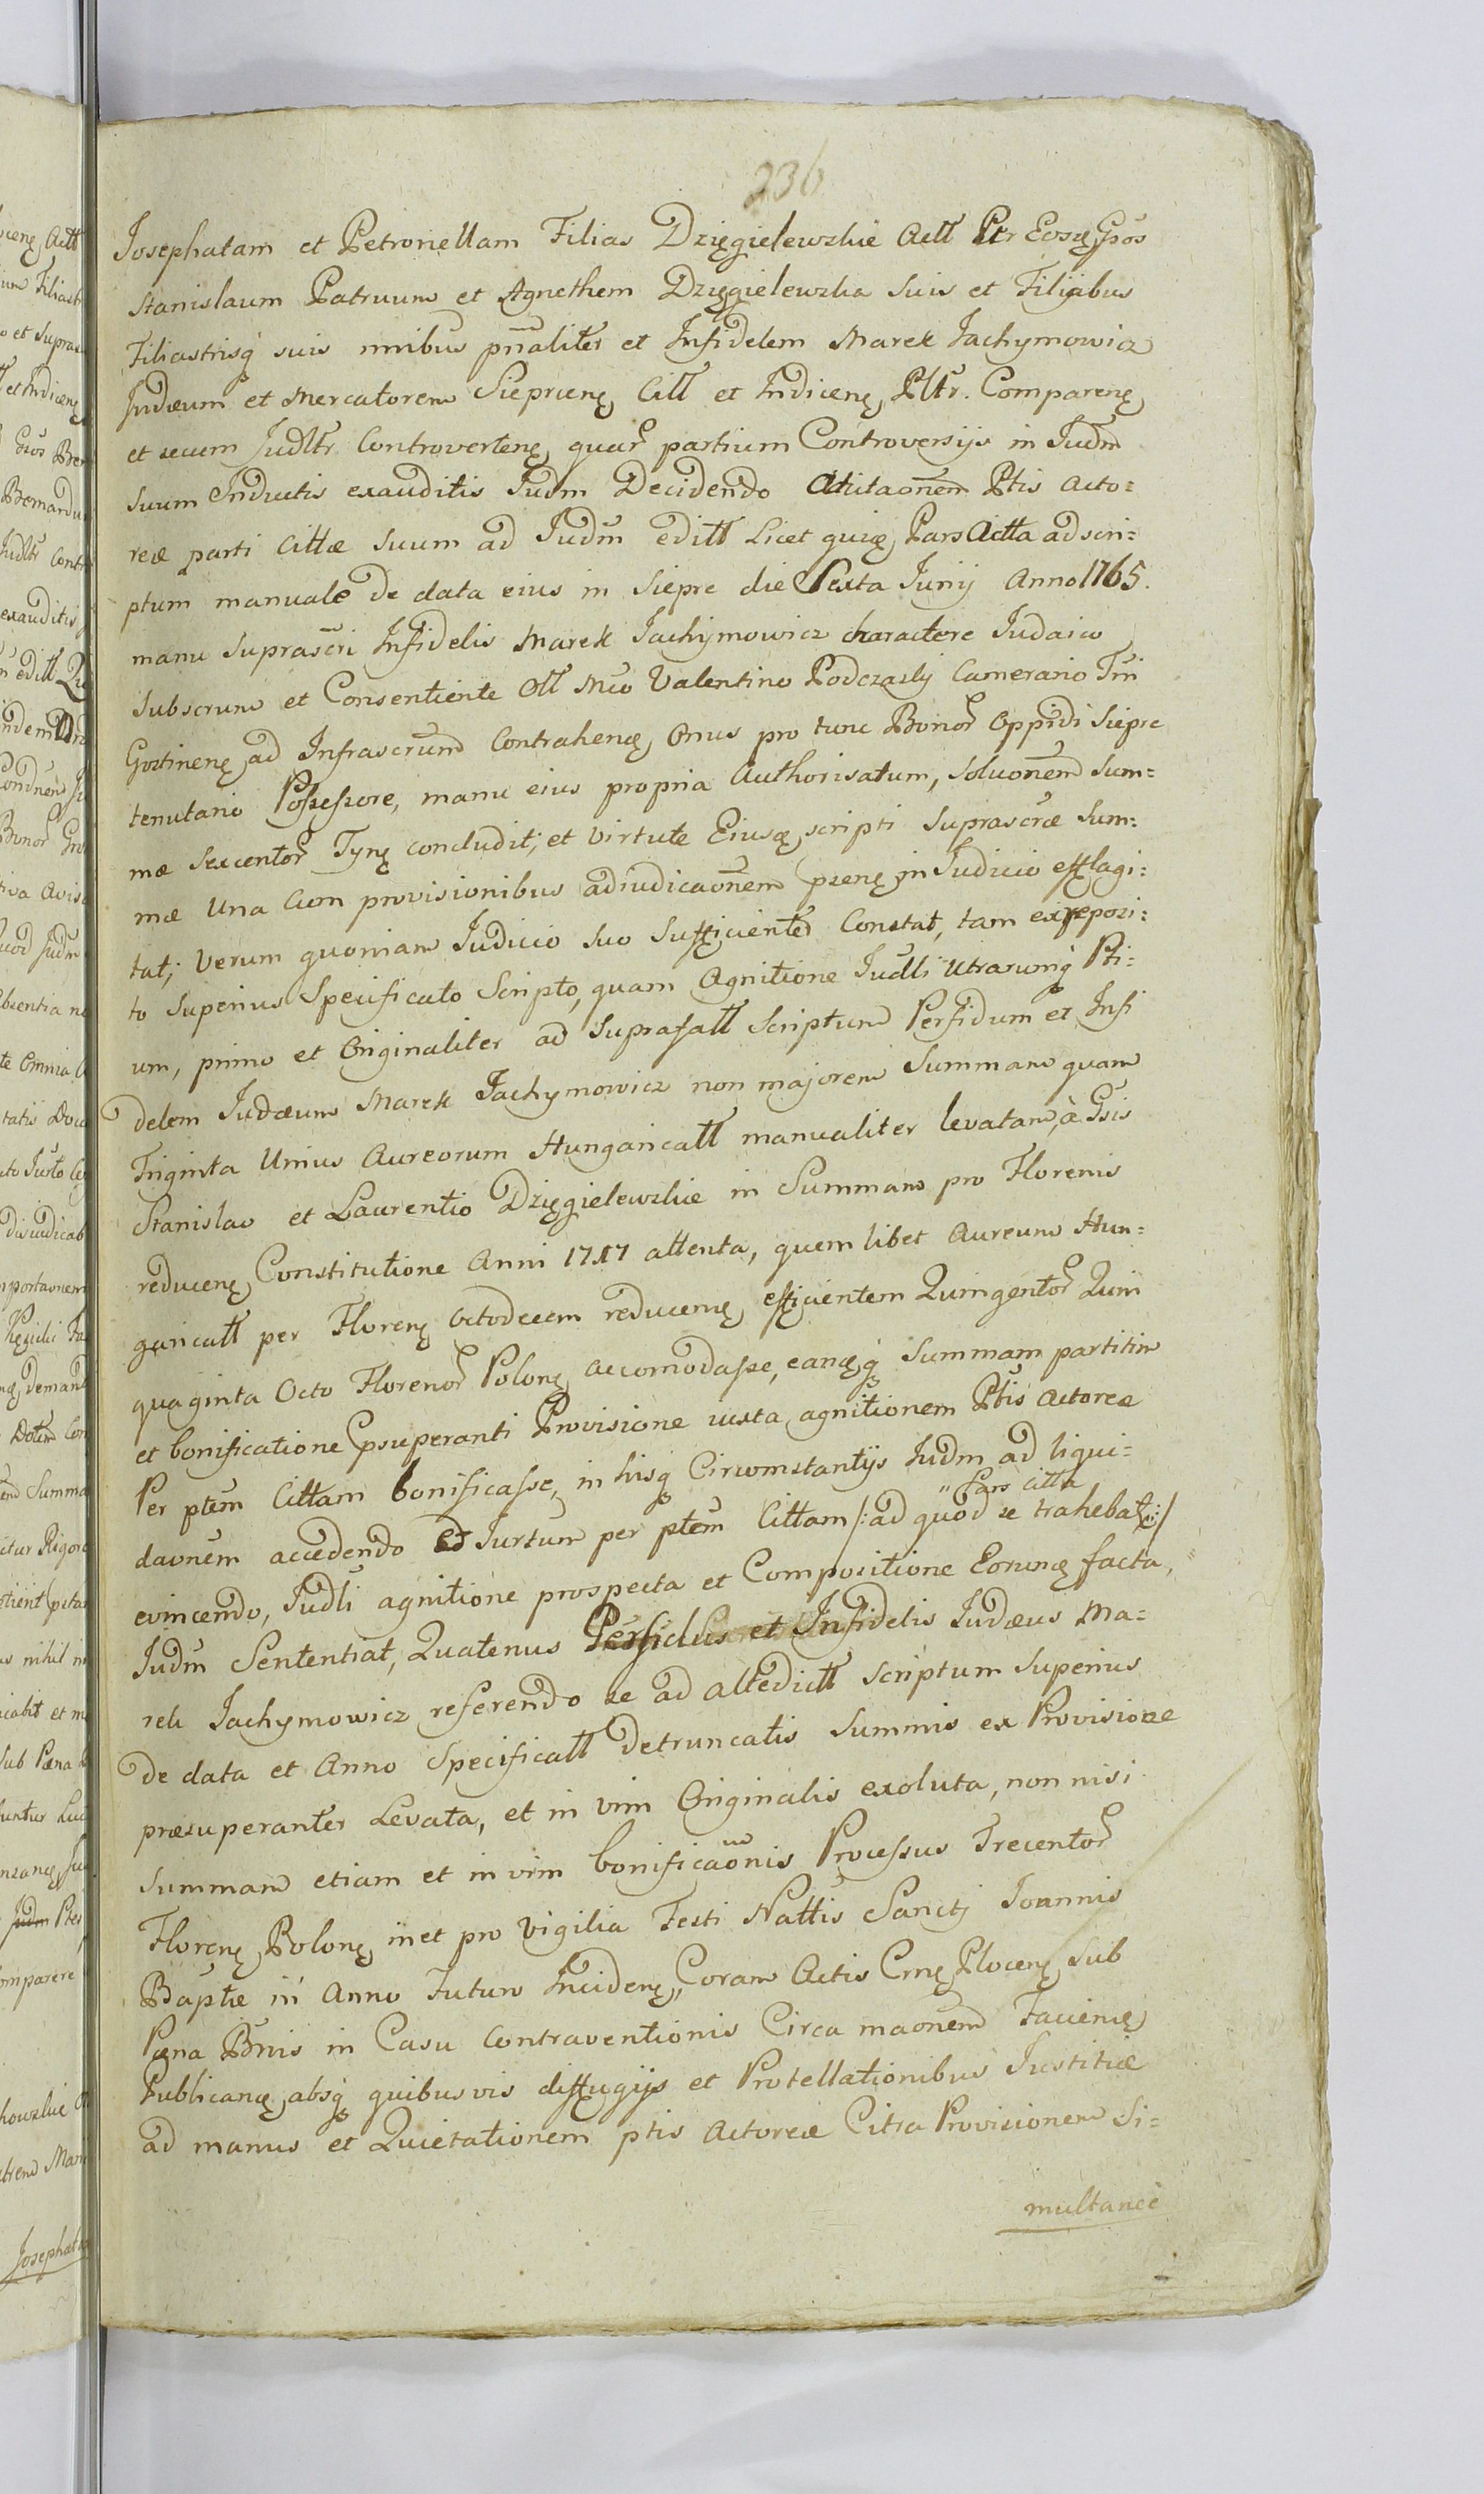 236
Josephatam et Petronellam Filias Dzięgielewzkie Actt Ptr Eosq Gsos
Stanislaum Patruum et Agnethem Dzięgielewzka suis et Filijabus
Filiastrisq suis nnibus pnnaliter et Infidelem Marek Jachymowicz
Judæum et Mercatorem Sieprceng Citt et Indiceng Pltr. Compareng
et secum Judltr Controverteng quar partium Controversijs in Judm
suum Inductis exauditis Judm Decidendo Ptis Acto=
reæ parti Cittæ suum ad Judm editt Licet quiq Pars Actta ad scri=
ptum manuale De data eius in Siepre die Sexta Junij Anno 1765.
manu suprascri Infidelis Marek Jachymowicz charactere Judaico
subscrum et Consentiente Ott Mco Valentino Podczasly Camerario Tri
Gostineng ad Infrascrum Contraheng Onus pro tunc Bonor Oppidi Siepre
tenutario Possessore, manu eius propria Authorisatum, solvonem sum=
mæ sexcentor Tynq concludit; et virtute Eiusq scripti suprascræ sum=
mæ Una Cum provisionibus adiudicaonem pseng in Judicio efflagi=
tat; Verum quoniam Judicio suo sufficienter Constat, tam ex reposi=
to superius Specificato Scripto, quam Agnitione Judlli Utrarumq Pti=
um, primo et Originaliter ad suprafatt Scriptum Perfidum et Infi
delem Judæum Marek Jachymowicz non majorem Summam quam
Triginta Unius Aureorum Hungaricatt manualiter levatam, à Gsis
Stanislao et Laurentio Dzięgielewzkie in Summam pro Florenis
reduceng Constitutione Anni 1717 attenta, quem libet Aureum Hun=
garicatt per Floreng Octodecem reduceng efficientem Quingentor Quin
quaginta Octo Florenor Polonq accomodasse, eamqq Summam partitim
et bonificatione psuperanti Provisione iuxta agnitionem Ptis Actoreæ
Per ptem Cittam bonificasse, in hisq Circumstantijs Judm ad liqui=
" Pars Citta
daonem accedendo Et Jurtum per ptem Cittam /: ad quod se trahebat :/
evincendo, Judli agnitione prospecta et Compositione Eorumq facta,
Judm Sententiat, Quatenus Perfidus et Infidelis Judæus Ma=
rek Jachymowicz referendo se ad attedictt scriptum superius
De data et Anno Specificatt Detruncatis summis ex Provisione
præsuperanter Levata, et in vim Originalis exoluta, non nisi
summam etiam et in vim bonificaonis Processus Trecentor
Floreng Polonq inet pro Vigilia Festi Nattis Sancti Joannis
Baptæ in Anno Futuro Incideng, Coram Actis Crng Ploceng sub
Pæna Bnis in Casu Contraventionis Circa maonem Facieng
Publicang absq quibusvis diffugijs et Protellationibus Justitiæ
ad manus et Quietationem ptis Actoreæ Citra Provisionem Si=
multanee